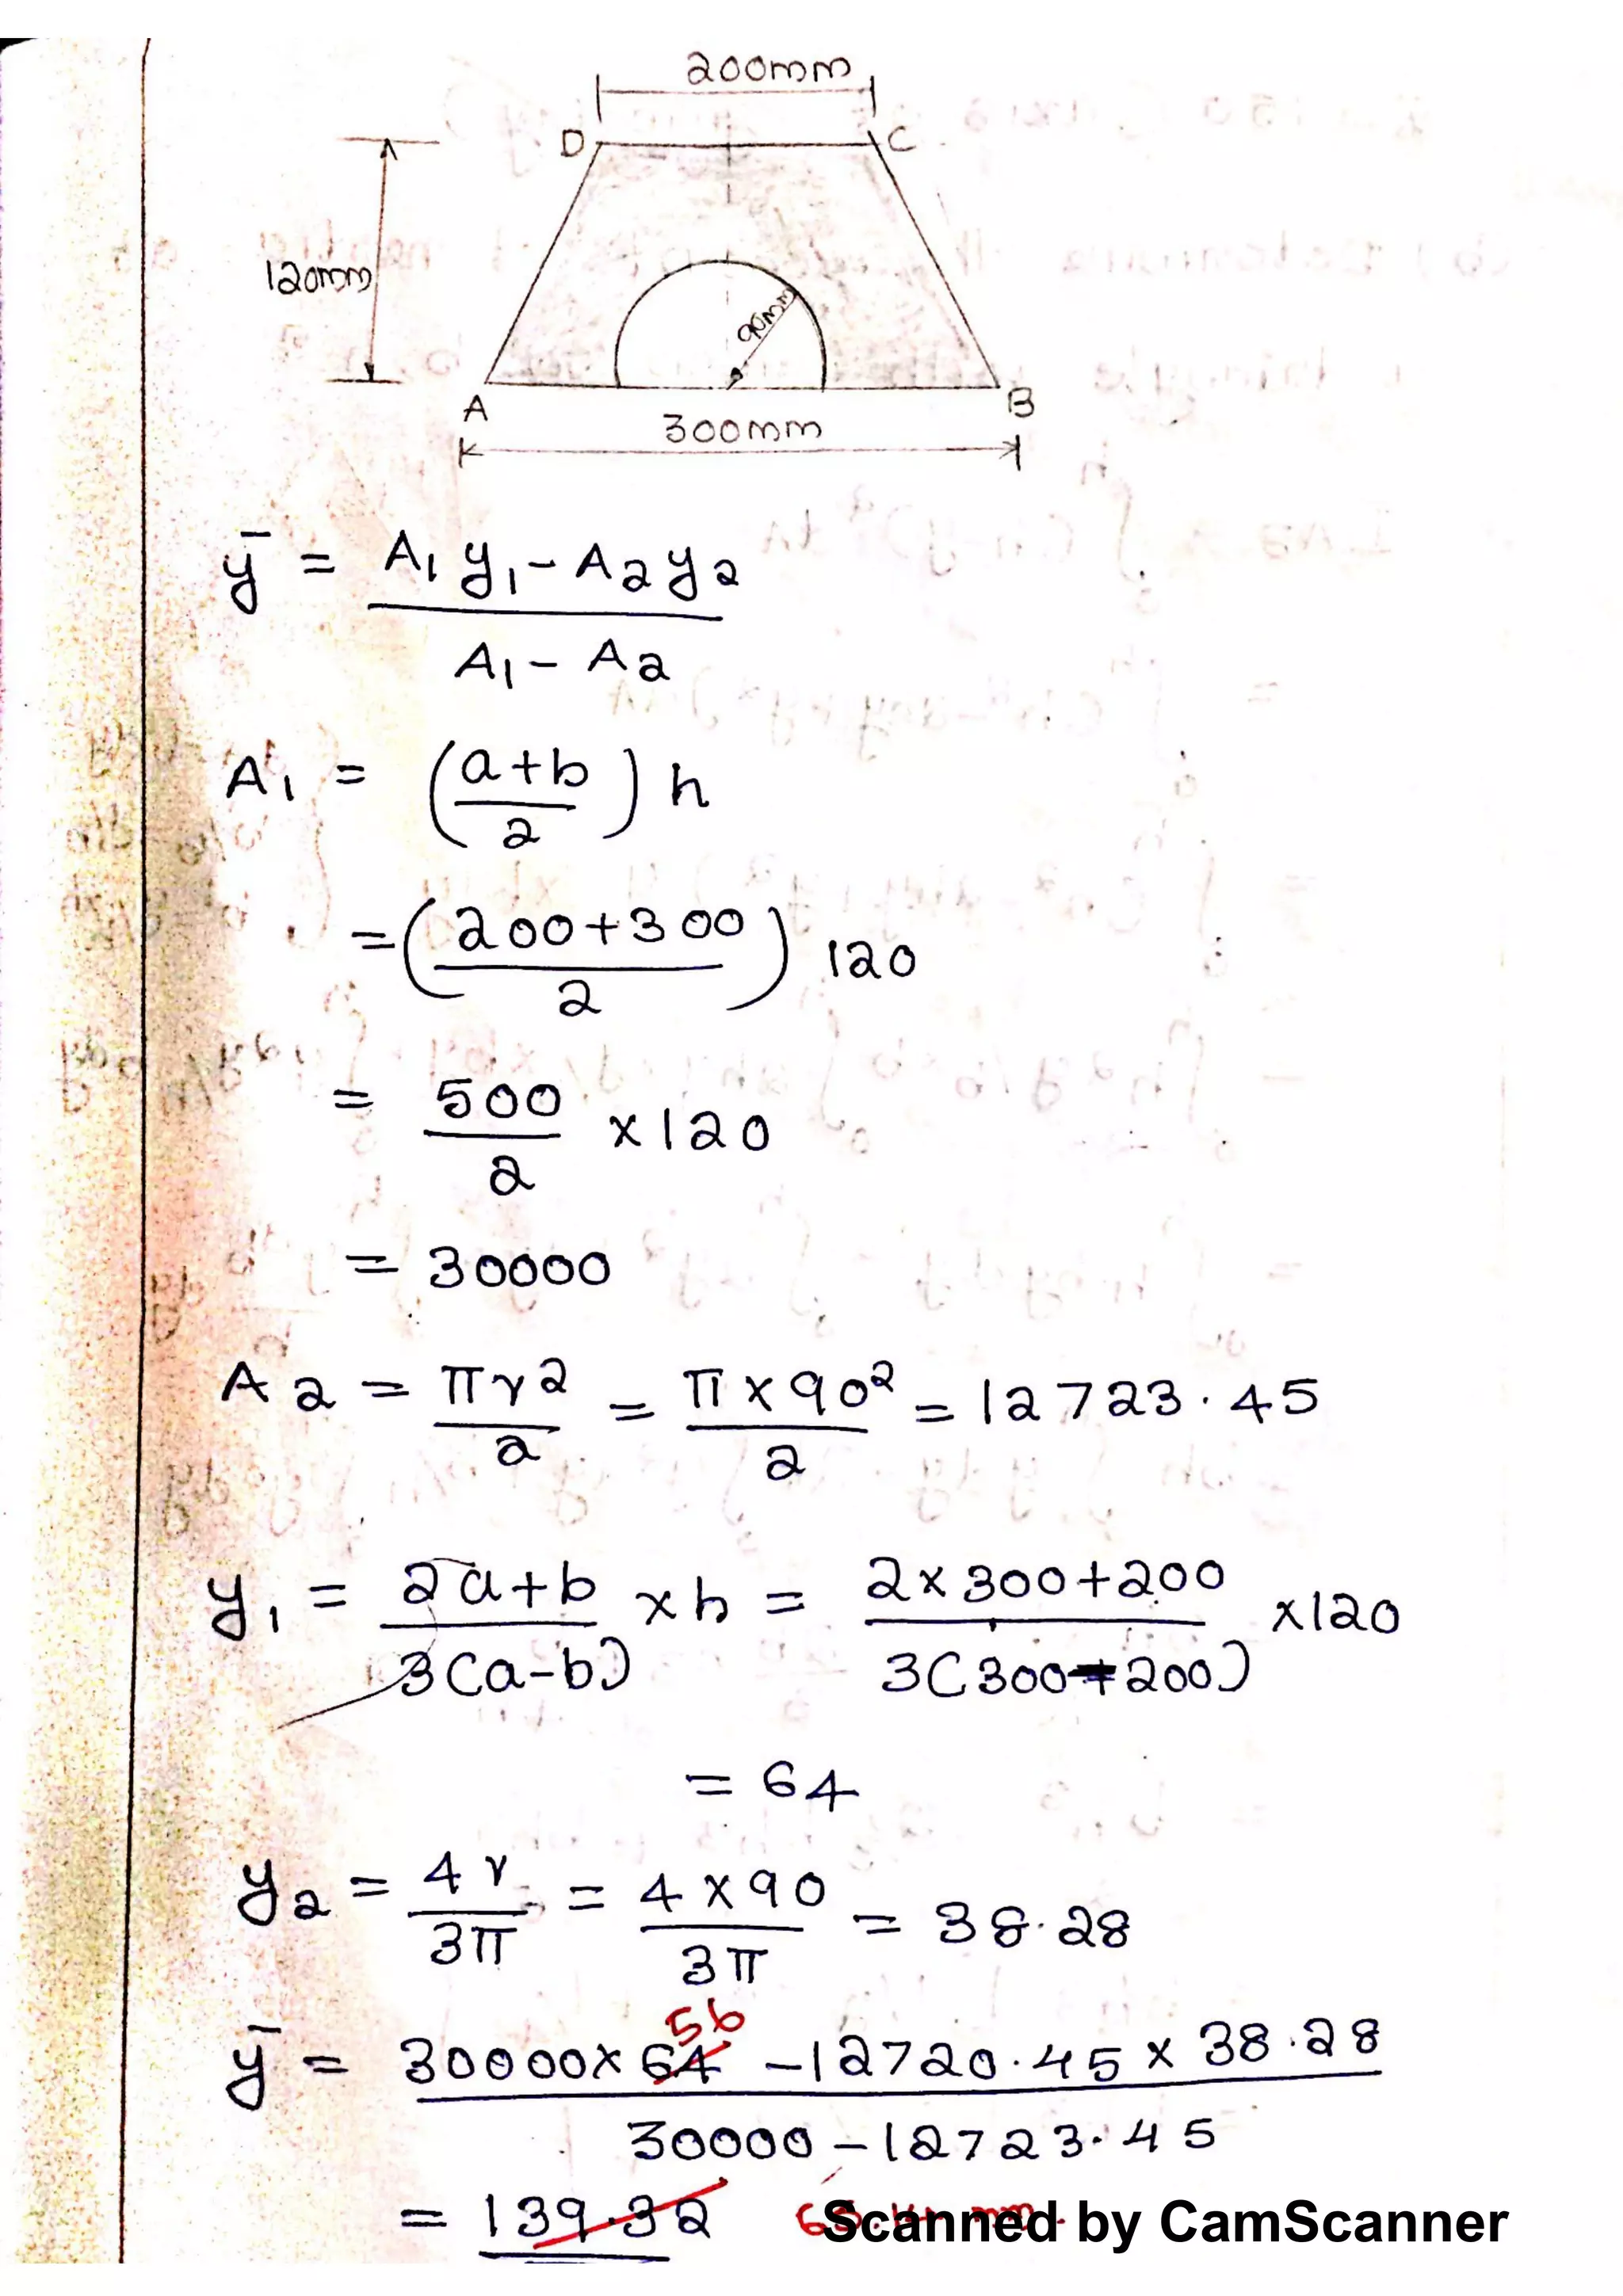 200mm
D C
120mm
90mm
A B
300mm
ȳ = A₁y₁ - A₂y₂ / A₁ - A₂
A₁ = (a+b / 2) h
= (200+300 / 2) 120
= 500 / 2 × 120
= 30000
A₂ = πr² / 2 = π × 90² / 2 = 12723.45
y₁ = 2a+b / 3(a-b) × h = 2×300+200 / 3(300+200) ×120
= 64
y₂ = 4r / 3π = 4×90 / 3π = 38.28
56
ȳ = 30000×64 -12720.45 × 38.28 / 30000 -12723.45
= 139.32
Scanned by CamScanner